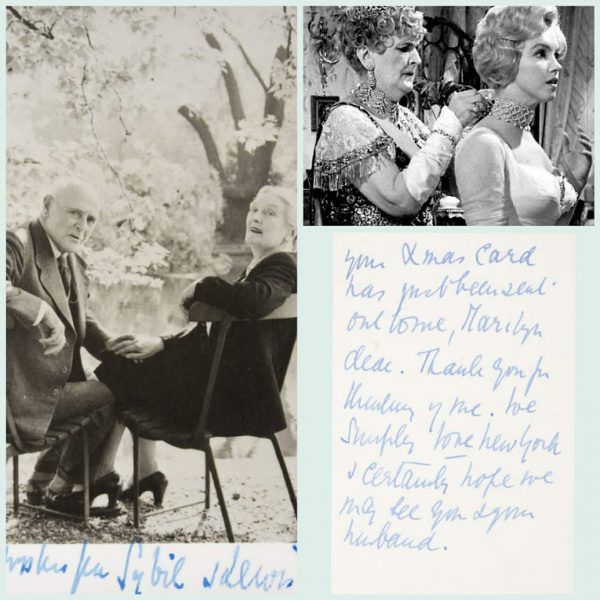 your Xmas Card
has just been sent
on to me, Marilyn
dear. Thank you for
thinking of me. We
Simply love New York
& certainly hope we
may see you & your
husband.
Sybil & Lewis